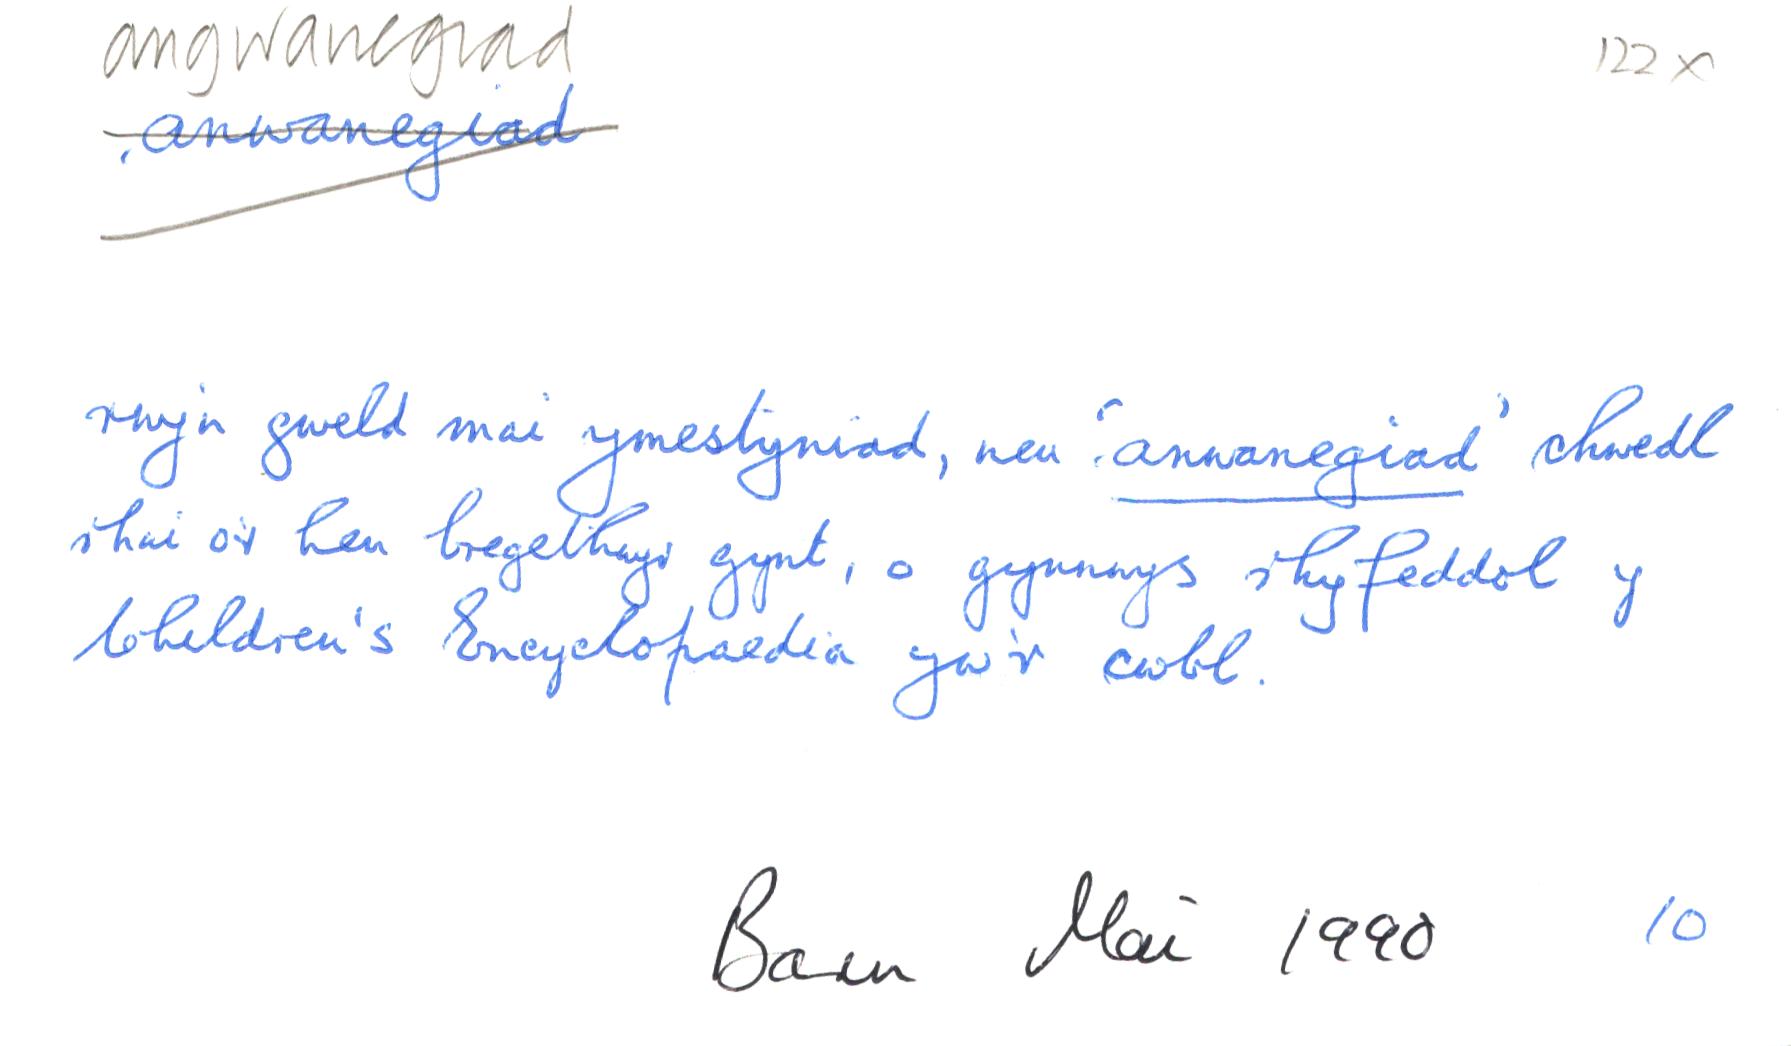 angwanegiad
122 x
anwanegiad
rwy'n gweld mai ymestyniad, neu 'anwanegiad' chwedl
rhai o'r hen bregethwyr gynt, o gynnwys rhyfeddol y
Children's Encyclopaedia yw'r cwbl.
Barn Mai 1990 10